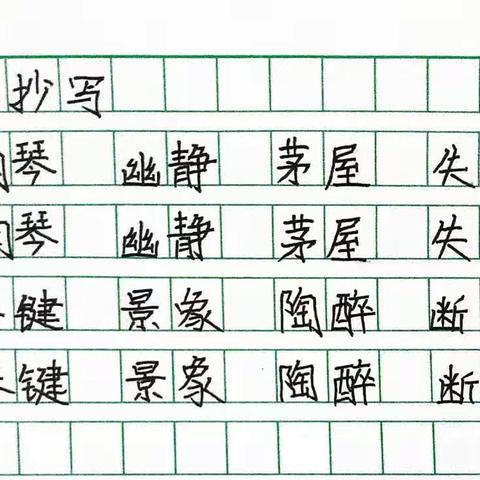 抄写
琴 幽静 茅屋 失
琴 幽静 茅屋 失
键 景象 陶醉 断
键 景象 陶醉 断